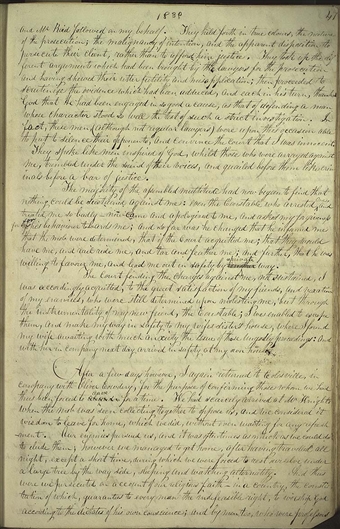 1830 47
and Mr Reid followed in my behalf. They held forth in true colors, the nature
of the prosecution; the malignancy of intention, and the apparent disposition to
persecute their client, rather than to afford him justice. They took up the dif-
ferent arguments which had been brought by the lawyers for the prosecution
and having shewed their utter futility and misapplication; then proceeded to
scrutinize the evidence which had been adduced, and each in his turn, thanked
God that he had been engaged in so good a cause, as that of defending a man
whose character stood so well the test of such a strict investigation. In
fact, these men (although not regular lawyers) were upon this occasion able
to put to silence their opponents, and convince the court that I was innocent.
They spoke like men inspired of God, whilst those who were arrayed against
me, trembled under the sound of their voices, and quailed before them like crim-
inals before a bar of justice.
The majority of the assembled multitude had now begun to find that
nothing could be sustained against me: even the Constable who arrested, and
treated me so badly now came and apologised to me, and asked my forgiveness
for his behaviour towards me; and so far was he changed that he informed me
that the mob were determined, that if the Court acquitted me; that they would
have me, and and ride me, and tar and feather me; and further, that he was
willing to favour me, and lead me out in safety by a private way.
The Court finding the charges against me, not sustained, I
was accordingly acquitted, to the great satisfaction of my friends, and vexation
of my enemies, who were still determined upon molesting me; but through
the instrumentality of my new friend, the Constable; I was enabled to escape
them, and make my way in safety to my wife's sister's house, where I found
my wife awaiting with much anxiety the issue of those ungodly proceedings: and
with her in company next day arrived in safety at my own house.
After a few days however, I again returned to Colesville, in
company with Oliver Cowdery, for the purpose of confirming those whom we had
thus been forced to abandon for a time. We had scarcely arrived at Mr Knights
when the mob was seen collecting together to oppose us, and we considered it
wisdom to leave for home, which we did, without even waiting for any refresh-
ment. Our enemies pursued us, and it was oftentimes as much as we could do
to elude them; however we managed to get home, after having travelled all
night, except a short time, during which we were forced to rest ourselves under
a large tree by the way side, sleeping and watching alternately. And thus
were we persecuted on account of our religious faith - in a country, the consti-
tution of which, guarantees to every man the indefeasible right, to worship God
according to the dictates of his own conscience; and by men too, who were professors